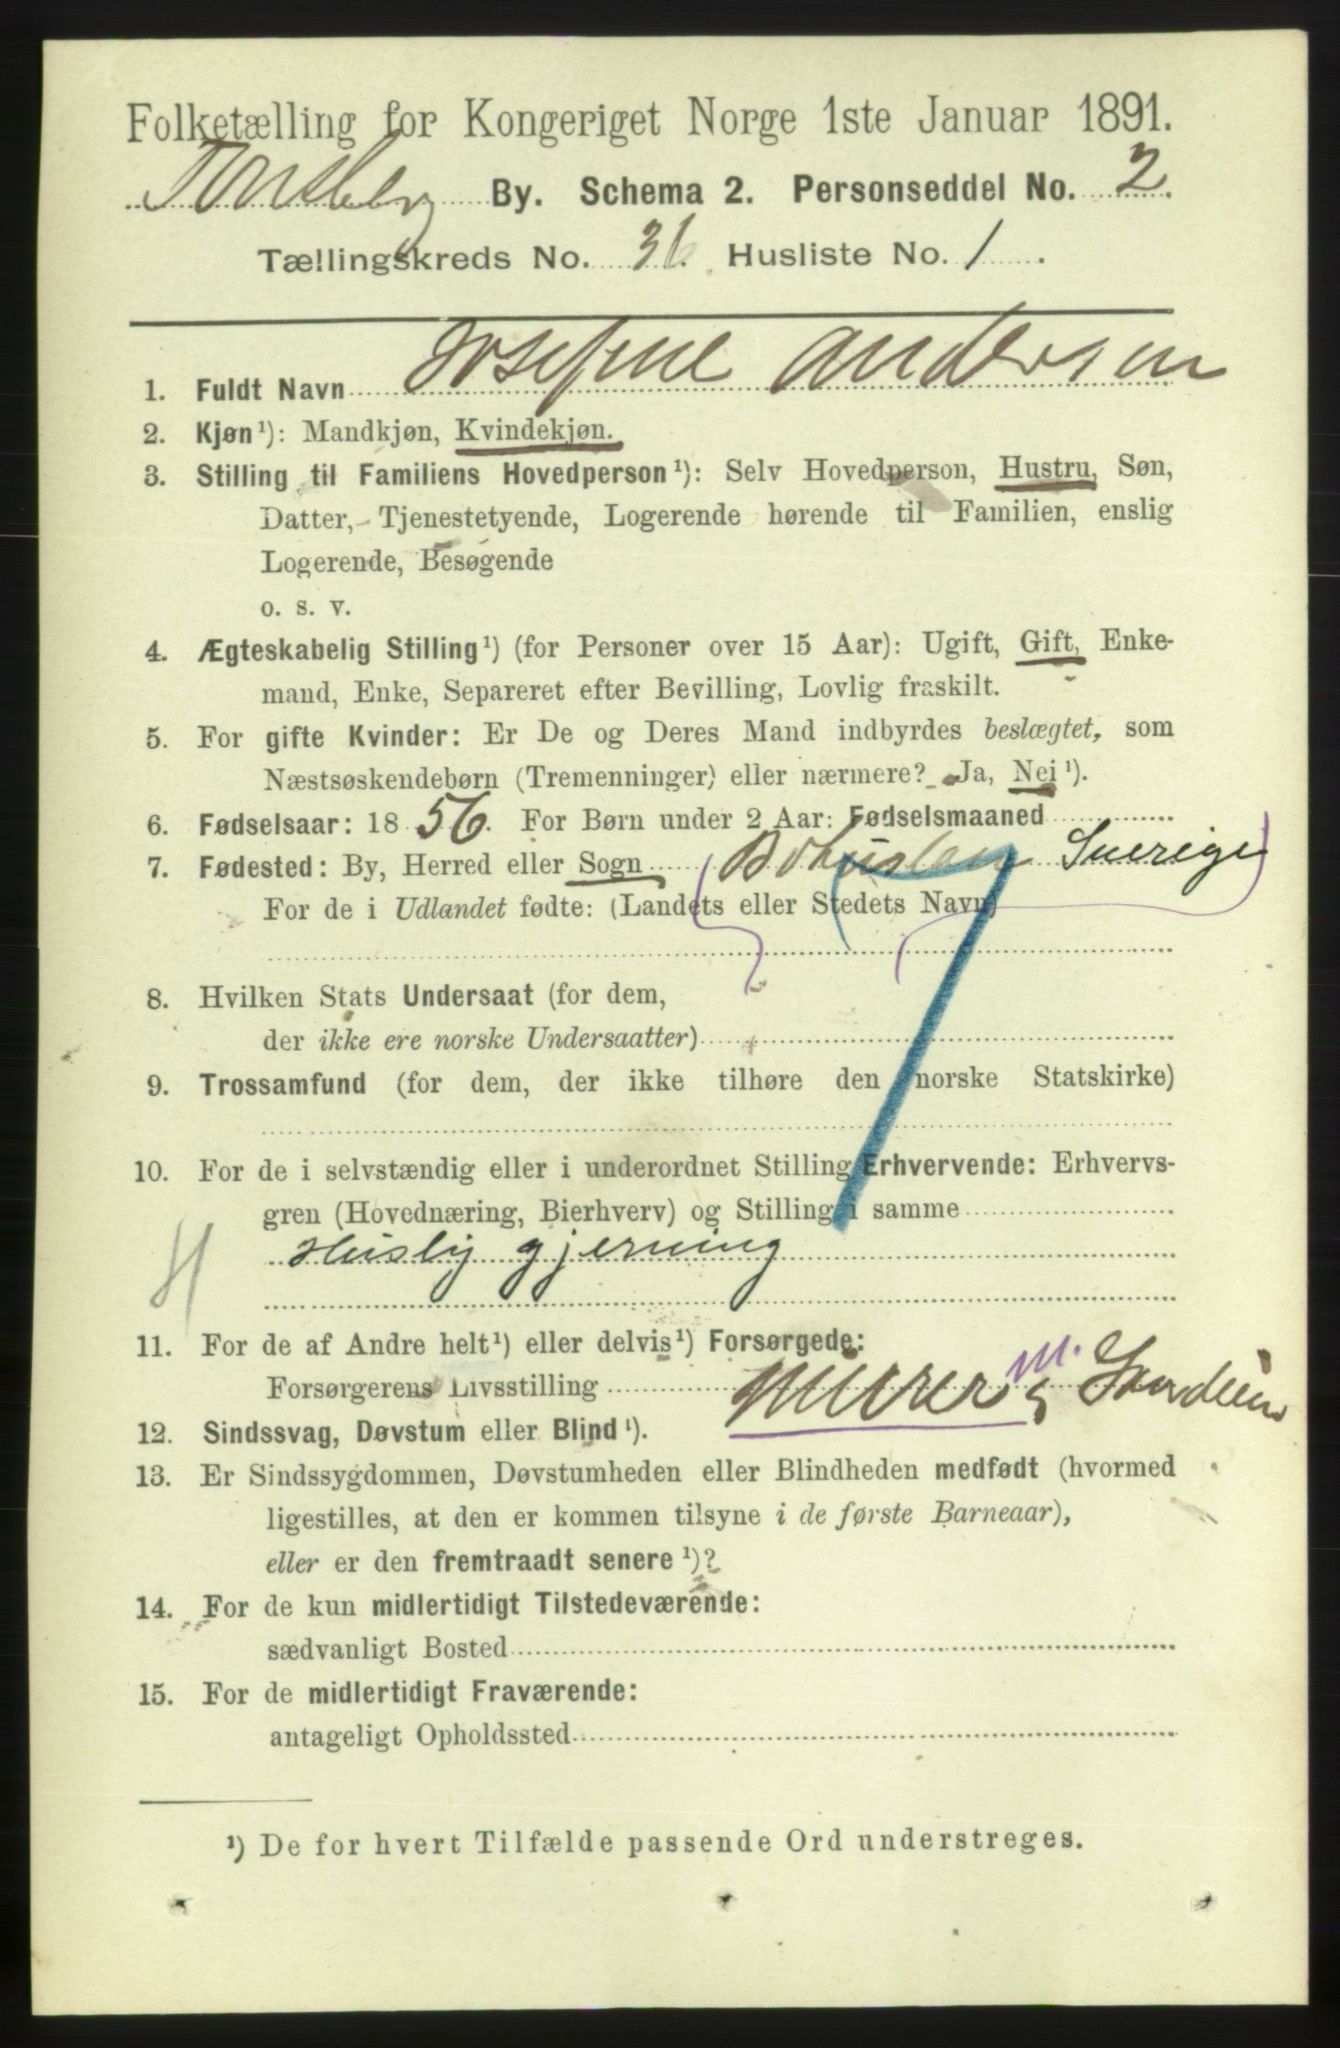 Folketælling for Kongeriget Norge 1ste Januar 1891.
Tønsberg By. Schema 2. Personseddel No. 2.
Tællingskreds No. 36. Husliste No. 1.
1. Fuldt Navn Josefine Andersen
2. Kjøn¹): Mandkjøn, Kvindekjøn.
3. Stilling til Familiens Hovedperson¹): Selv Hovedperson, Hustru, Søn,
Datter, Tjenestetyende, Logerende hørende til Familien, enslig
Logerende, Besøgende
o. s. v.
4. Ægteskabelig Stilling¹) (for Personer over 15 Aar): Ugift, Gift, Enke-
mand, Enke, Separeret efter Bevilling, Lovlig fraskilt.
5. For gifte Kvinder: Er De og Deres Mand indbyrdes beslægtet, som
Næstsøskendebørn (Tremenninger) eller nærmere? Ja, Nei¹).
6. Fødselsaar: 1856. For Børn under 2 Aar: Fødselsmaaned
7. Fødested: By, Herred eller Sogn Bohuslän Sverige
For de i Udlandet fødte: (Landets eller Stedets Navn)
8. Hvilken Stats Undersaat (for dem,
der ikke ere norske Undersaatter)
9. Trossamfund (for dem, der ikke tilhøre den norske Statskirke)
10. For de i selvstændig eller i underordnet Stilling Erhvervende: Erhvervs-
gren (Hovednæring, Bierhverv) og Stilling i samme
H Huslig gjerning
11. For de af Andre helt¹) eller delvis¹) Forsørgede:
Forsørgerens Livsstilling Murer m.
12. Sindssvag, Døvstum eller Blind¹).
13. Er Sindssygdommen, Døvstumheden eller Blindheden medfødt (hvormed
ligestilles, at den er kommen tilsyne i de første Barneaar),
eller er den fremtraadt senere¹)?
14. For de kun midlertidigt Tilstedeværende:
sædvanligt Bosted
15. For de midlertidigt Fraværende:
antageligt Opholdssted
¹) De for hvert Tilfælde passende Ord understreges.